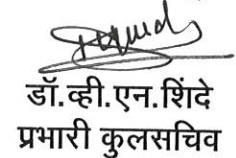 डॉ.व्ही.एन.शिंदे
प्रभारी कुलसचिव